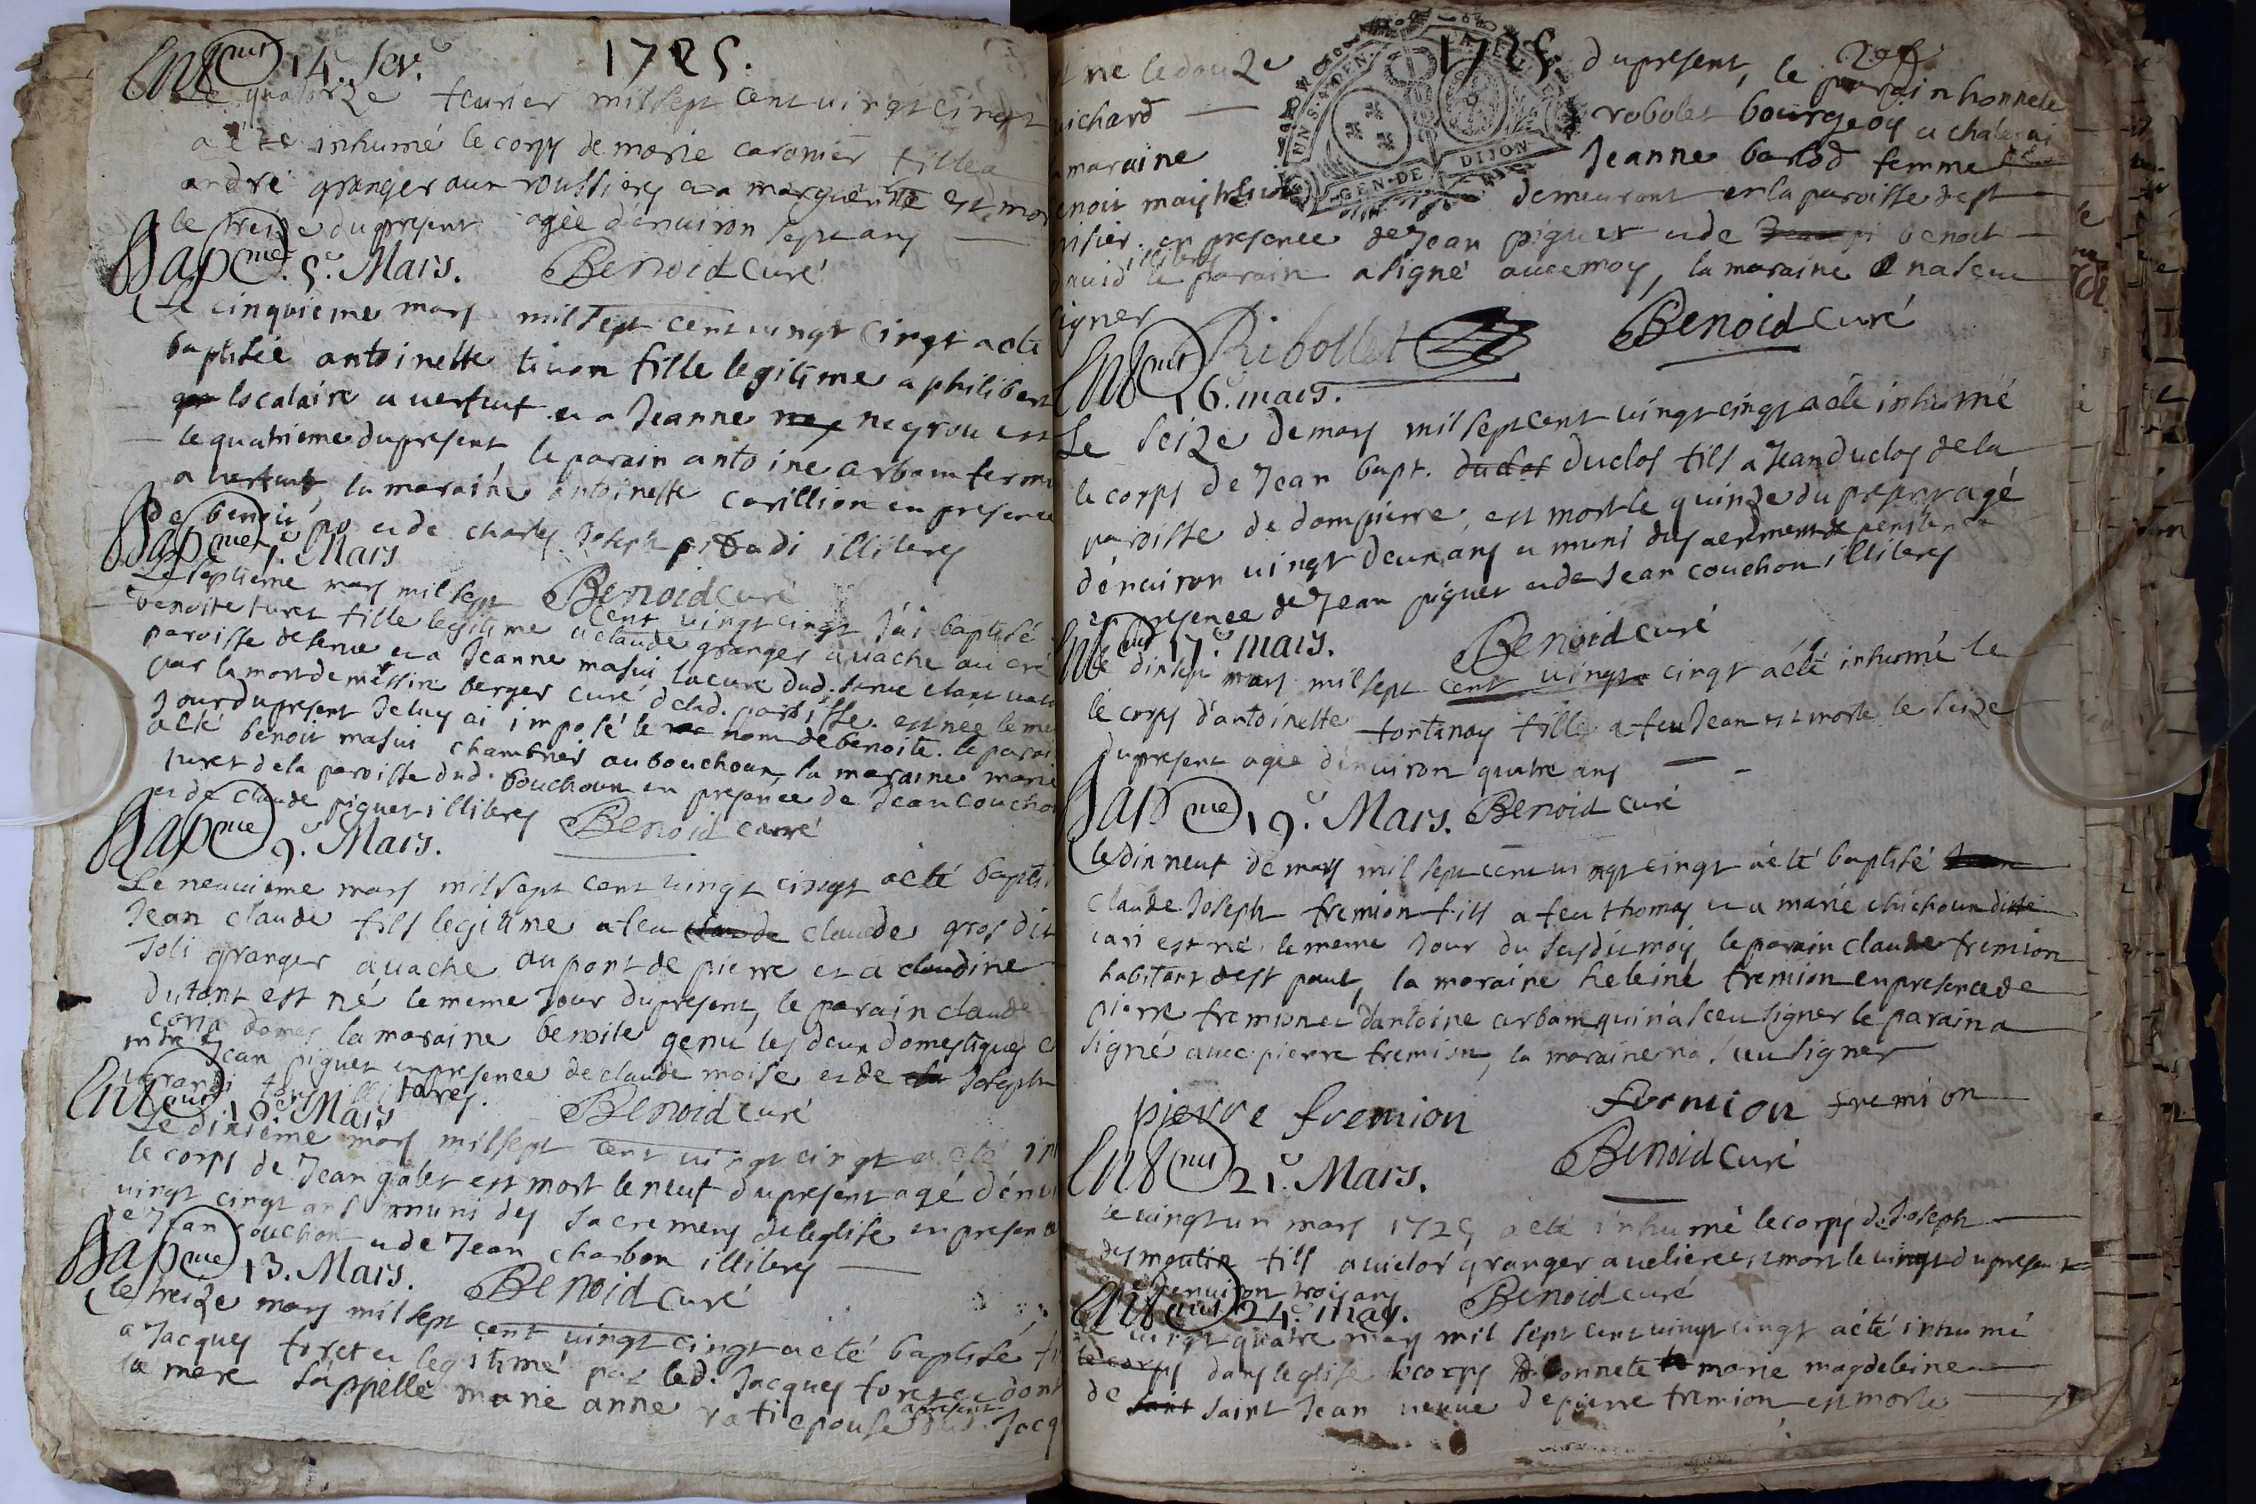 1725.
Ent^(mt) 14. fev.
Le quatorze feurier mil sept cent uingt cingt
a été inhumé le corps de marie caronier fille a
andré granger aux roussieres et a marguerite est mor
le treize du present agée d'enuiron sept ans
Bap^(me). 5^e. Mars. Benoid curé
Le cinquieme mars mil sept cent uingt cingt a été
baptisée antoinette tiuon fille legitime a philibert
locataire a uertfut et a Jeanne negrou est
le quatrieme du present le parain antoine arbam fermi
a uertfut, la maraine antoinette carillion en presence
de benoit et de charles Joseph illiteres
Bap^(me) 7^e. Mars
Benoid curé
Le septieme mars mil sept cent uingt cingt J'ai baptisé
benoite furet fille legitime a claude granger a uache au cré
paroisse de serue et a Jeanne masui la cure dud. serue etant uaca
par la mort de messire berger curé de lad. paroisse. est née le me
Jour du present Je luy ai imposé le nom de benoite. le parai
a été benoit masui chambrier au bouchoux, la maraine marie
furet de la paroisse dud. bouchoux en presence de Jean couchon
et de claude piguet illiteres Benoid curé
Bap^(me) 9^e. Mars.
Le neuuieme mars mil sept cent uingt cingt a été bapti
Jean claude fils legitime a feu claude claude gros dit
Joli granger a uache au pont de pierre et a claudine
dutant est né le meme Jour du present, le parain claude
la maraine benoite genu les deux domestiques
Jean piguet en presence de claude moise et de Joseph
Ent^(mt) 10^e. Mars
Benoid curé
Le dixieme mars mil sept cent uingt cingt a été in
le corps de Jean galet est mort le neuf du present agé d'enui
uingt cingt ans muni des sacremens de leglise en presence
de Jean couchon et de Jean charbon illiteres
Bap^(me) 13. Mars. Benoid curé
le treize mars mil sept cent uingt cingt a été baptisé
a Jacques foret et legitimé par led. Jacques foret et dont
la mere s'appelle marie anne rati epouse apresent dud. Jacq
1725.
ne le douze du present, le parain honnete
uichard robolet bourgeois a chatenai
maraine Jeanne barlod femme
benoit demeurant en la paroisse de st
en presence de Jean piguet et de benoit
dauid illiteres le parain a signé auec moy, la maraine n'a sceu
signer
Ribollet Benoid curé
Ent^(mt) 16^e. mars.
Le seize de mars mil sept cent uingt cingt a été inhumé
le corps de Jean bapt. duclos duclos fils a Jean duclos de la
paroisse de dompierre, est mort le quinze du present agé
d'enuiron uingt deux ans et muni du sacrement de penitence
en presence de Jean piguet et de Jean couchon illiteres
Ent^(mt) 17^e. mars. Benoid curé
Le dix sept mars mil sept cent uingt cingt a été inhumé le
le corps d'antoinette fontanay fille a feu Jean est morte le seize
du present agée d'enuiron quatre ans
Bap^(me) 19^e. Mars. Benoid curé
Le dix neuf de mars mil sept cent uingt cingt a été baptisé
claude Joseph fremion fils a feu thomas et a marie chichoux ditte
cari est né le meme Jour du susdit mois le parain claude fremion
habitant de st paul, la maraine heleine fremion en presence de
pierre fremion et d'antoine arbam qui n'a sceu signer le parain a
signé auec pierre fremion, la maraine n'a sceu signer
pierre fremion fremion fremion
Ent^(mt) 21^e. Mars. Benoid curé
Le uingt un mars 1725 a été inhumé le corps de Joseph
des moulin fils a uictor granger a ueliere est mort le uingt du present
agé d'enuiron trois ans
Ent^(mt) 24^e. mars. Benoid curé
Le uingt quatre mars mil sept cent uingt cingt a été inhumé
le corps dans leglise le corps d'honnete marie magdeleine
de saint saint Jean ueuue de pierre fremion est morte
GEN. DE DIJON